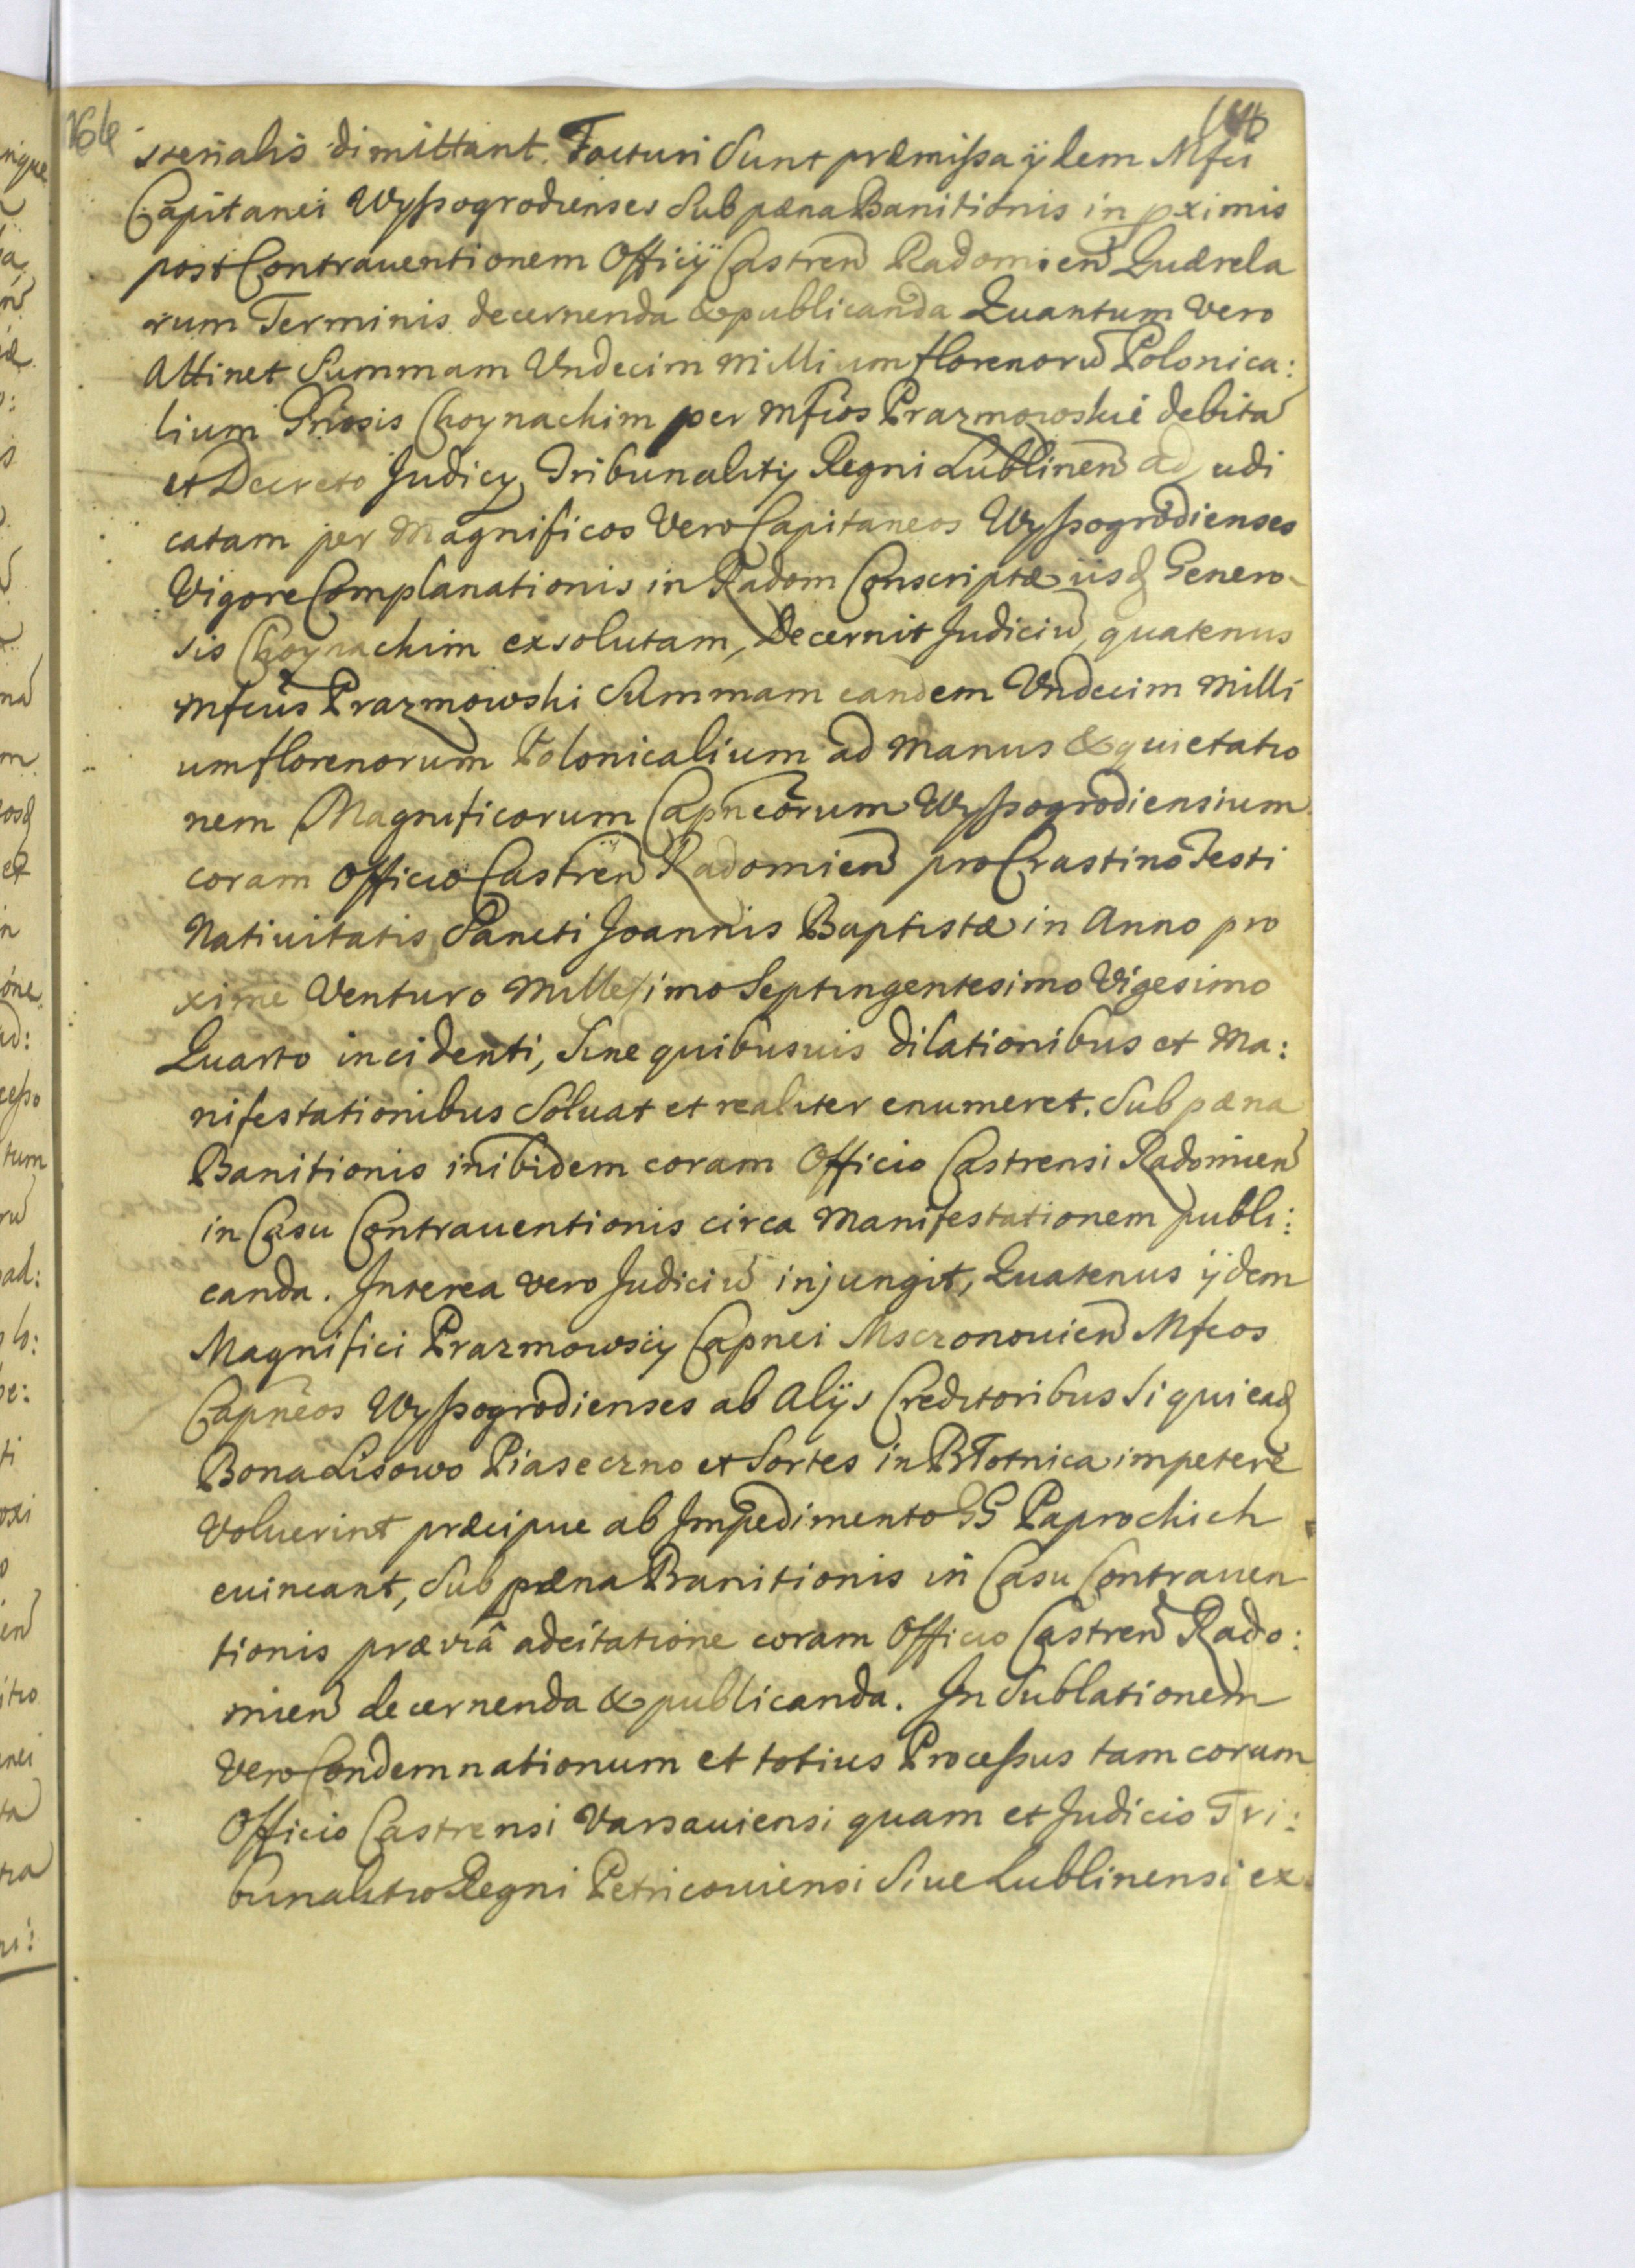 sterialis dimittant. Facturi Sunt præmißa ijdem Mfci
Capitanei Wyßogrodienses Sub pæna Banitionis in pximis
post Contrauentionem Officij Castren Radomien Quærela
rum Terminis decernenda & publicanda Quantum Vero
Attinet Summam Vndecim Millium florenorū Polonica:
lium Gnosis Choynackim per Mfcos Prazmowskie debita
et Decreto Judicij Tribunalitij Regni Lublinen ad udi
catam per Magnificos Vero Capitaneos Wyßogrodienses
Vigore Complanationis in Radom Conscriptæ iisq Genero-
sis Choynackim exsolutam, Decernit Judiciū, quatenus
Mfcus Prazmowski Summam eandem Vndecim Milli
um florenorum Polonicalium ad Manus & quietatio
nem Magnificorum Capneorum Wyßogrodiensium
coram Officio Castren Radomien pro Crastino Festi
Natiuitatis Sancti Joannis Baptistæ in Anno pro
xime Venturo Millesimo Septingentesimo Vigesimo
Quarto incidenti, Sine quibusuis dilationibus et Ma:
nifestationibus Soluat et realiter enumeret. Sub pæna
Banitionis inibidem coram Officio Castrensi Radomien
in Casu Contrauentionis circa Manifestationem publi:
canda. Interea vero Judiciū injungit, Quatenus ijdem
Magnifici Prazmowscy Capnei Mscronouien Mfcos
Capneos Wyßogrodienses ab Alijs Creditoribus Si qui eaq
Bona Lisowo Piaseczno et Sortes in Błotnica impetere
Voluerint præcipue ab Impedimento GG Paprockich
euincant, Sub pæna Banitionis in Casu Contrauen
tionis præviâ adcitatione coram Officio Castren Rado:
mien decernenda & publicanda. In Sublationem
Vero Condemnationum et totius Proceßus tam coram
Officio Castrensi Varsauiensi quam et Judicio Tri:
bunalitio Regni Petricouiensi Siue Lublinensi ex